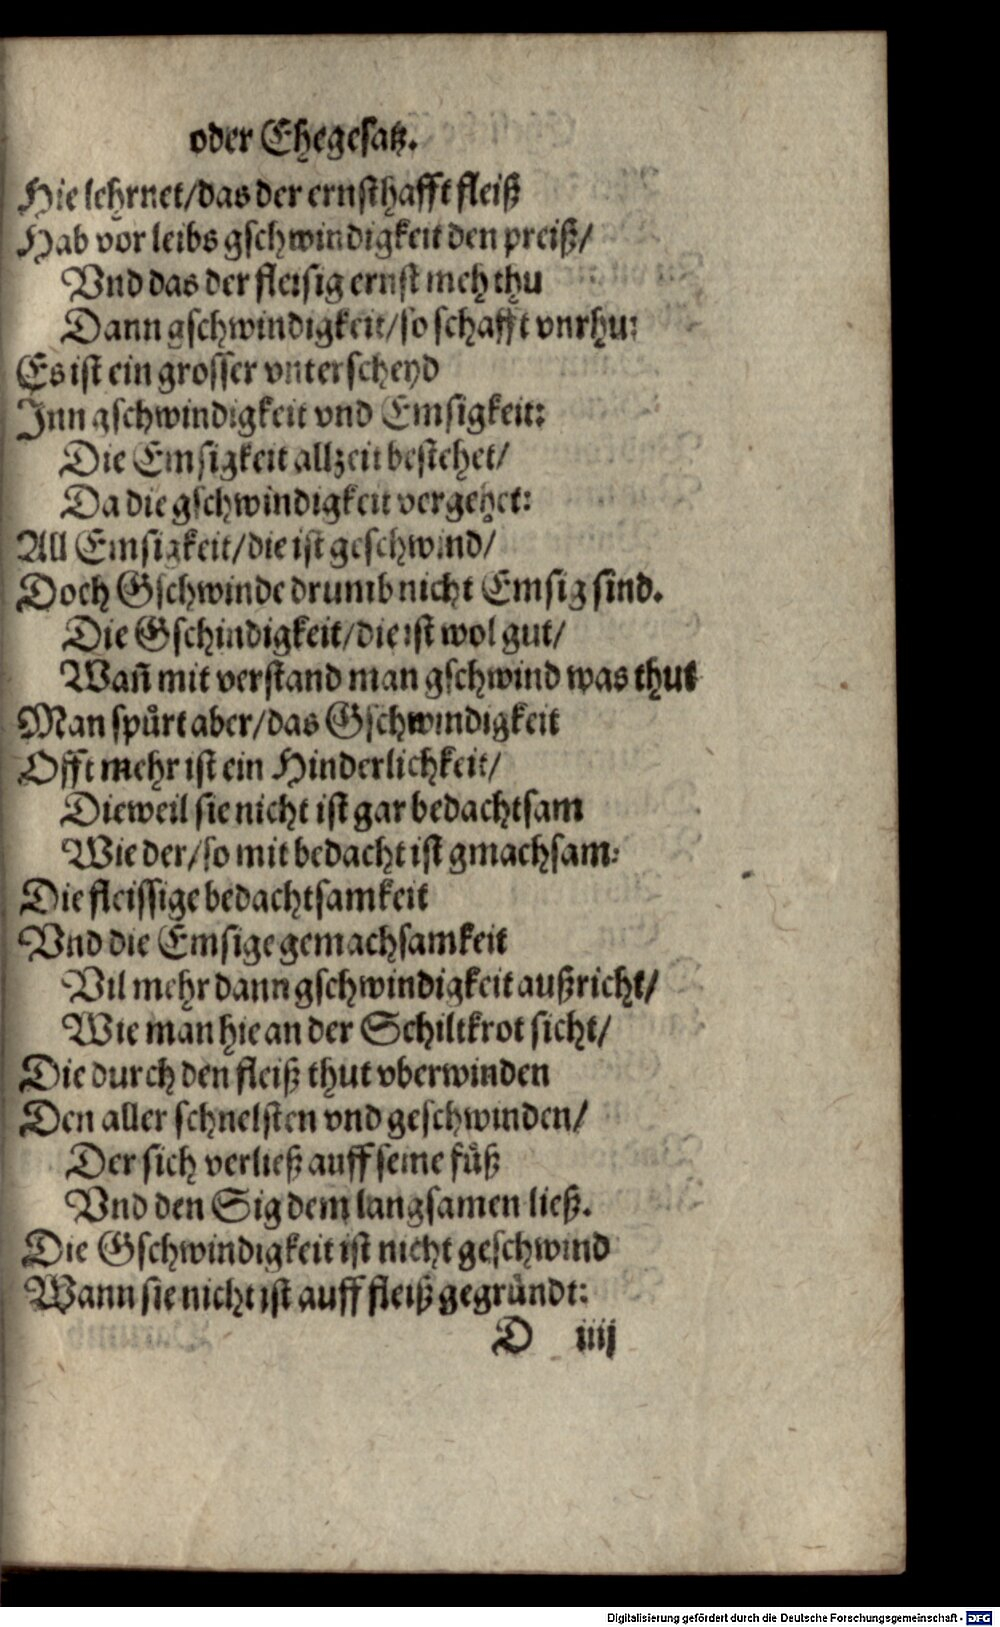 oder Ehegesatz.
Hie lehrnet/das der ernsthafft fleiß
Hab vor leibs gschwindigkeit den preiß/
Vnd das der fleisig ernst meh thu
Dann gschwindigkeit/so schafft vnrhu:
Es ist ein grosser vnterscheyd
Inn gschwindigkeit vnd Emsigkeit:
Die Emsigkeit allzeit bestehet/
Da die gschwindigkeit vergehet:
All Emsigkeit/die ist geschwind/
Doch Gschwinde drumb nicht Emsig sind.
Die Gschindigkeit/die ist wol gut/
Wañ mit verstand man gschwind was thut
Man spůrt aber/das Gschwindigkeit
Offt mehr ist ein Hinderlichkeit/
Dieweil sie nicht ist gar bedachtsam
Wie der/so mit bedacht ist gmachsam:
Die fleissige bedachtsamkeit
Vnd die Emsige gemachsamkeit
Vil mehr dann gschwindigkeit außricht/
Wie man hie an der Schiltkrot sicht/
Die durch den fleiß thut vberwinden
Den aller schnelsten vnd geschwinden/
Der sich verließ auff seine fůß
Vnd den Sig dem langsamen ließ.
Die Gschwindigkeit ist nicht geschwind
Wann sie nicht ist auff fleiß gegründt:
D iiij
Digitalisierung gefördert durch die Deutsche Forschungsgemeinschaft - DFG